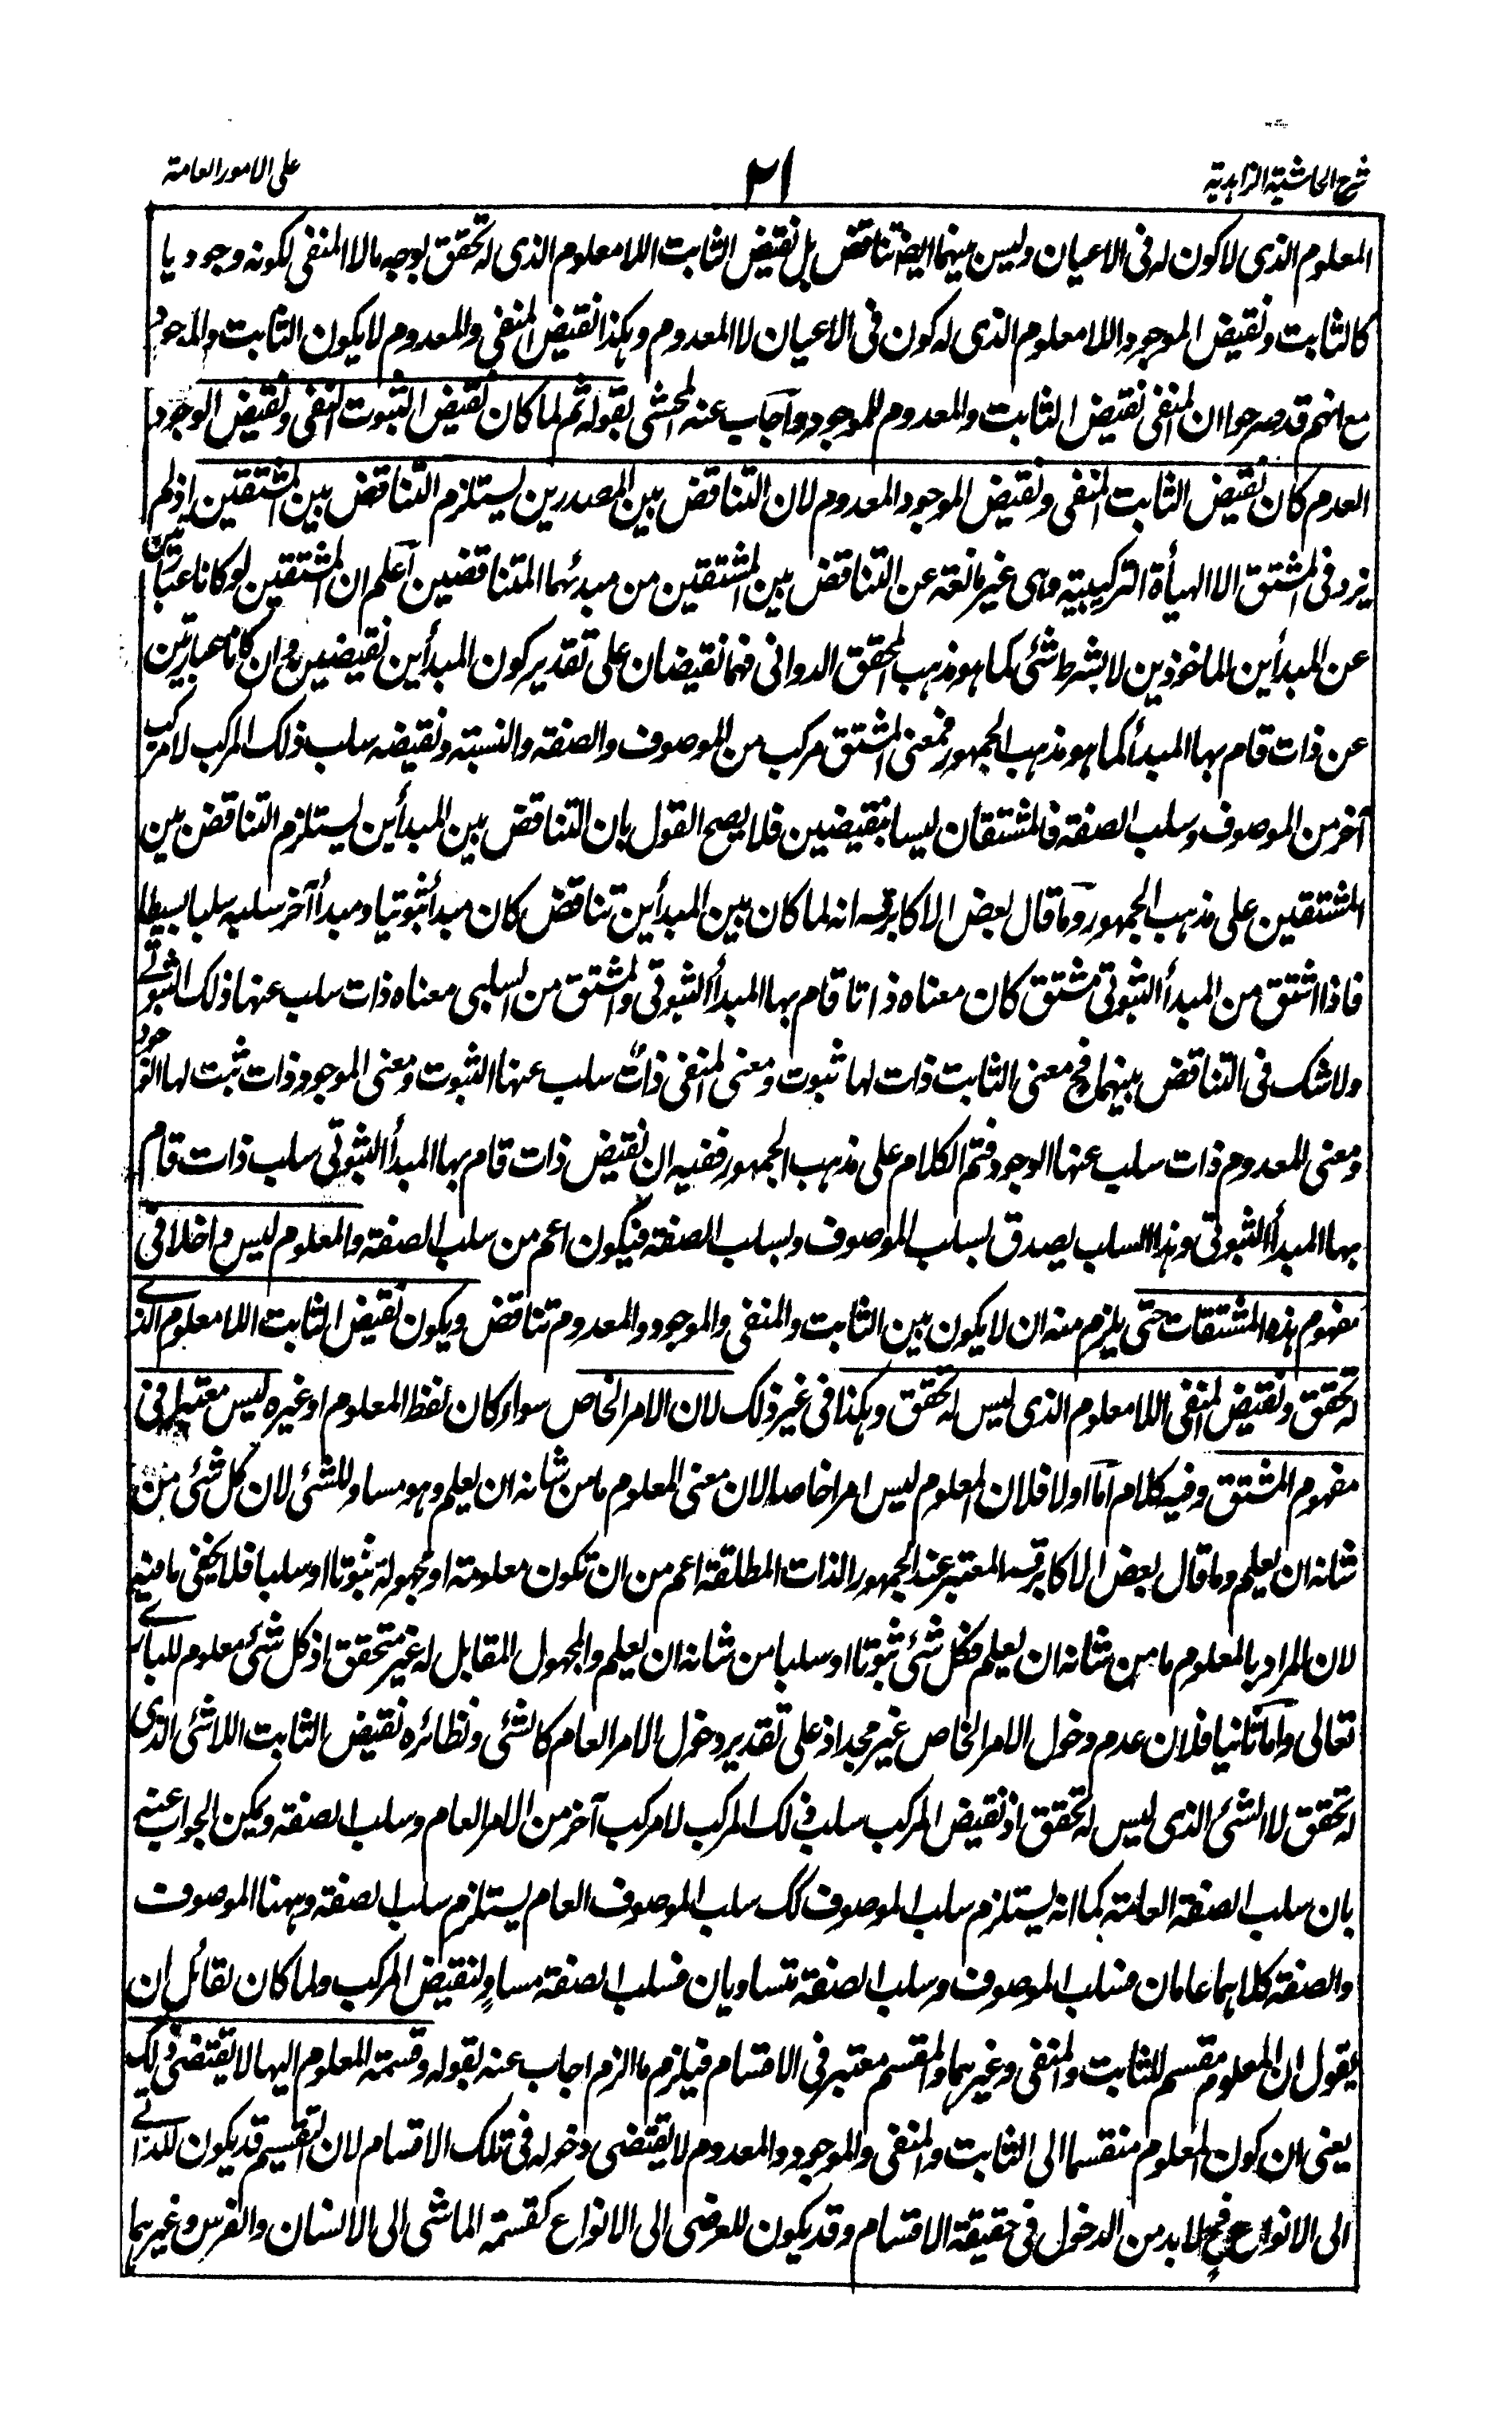 شرح الحاشية الزاهدية
٢١
على الامور العامة
المعلوم الذى لا كون له فى الاعيان وليس بينهما ايضا تناقض بل نقيض الثابت اللامعلوم الذى له تحقق بوجه ما لا المنفى لكونه وجوديا
كالثابت ونقيض الموجود اللامعلوم الذى له كون فى الاعيان لا المعدوم وهكذا نقيض المنفى والمعدوم لا يكون الثابت والموجود
مع انهم قد صرحوا ان المنفى نقيض الثابت والمعدوم للموجود واجاب عنه المحشى بقوله ثم لما كان نقيض الثبوت النفى ونقيض الوجود
العدم كان نقيض الثابت المنفى ونقيض الموجود المعدوم لان التناقض بين المصدرين يستلزم التناقض بين المشتقين اذ لم
يزد فى المشتق الا الهيأة التركيبية وهى غير مانعة عن التناقض بين المشتقين من مبدئهما المتناقضين اعلم ان المشتقين لو كانا عبارتين
عن المبدأين الماخوذين لا بشرط شئ كما هو مذهب المحقق الدوانى فهما نقيضان على تقدير كون المبدأين نقيضين وان كانا عبارتين
عن ذات قام بها المبدأ كما هو مذهب الجمهور فمعنى المشتق مركب من الموصوف والصفة والنسبة ونقيضه سلب ذلك المركب لا مركب
آخر من الموصوف وسلب الصفة فالمشتقان ليسا بنقيضين فلا يصح القول بان التناقض بين المبدأين يستلزم التناقض بين
المشتقين على مذهب الجمهور وما قال بعض الاكابر قسه انه لما كان بين المبدأين تناقض كان مبدأ ثبوتيا ومبدأ آخر سلبه سلبا بسيطا
فاذا اشتق من المبدأ الثبوتى مشتق كان معناه ذاتا قام بها المبدأ الثبوتى والمشتق من السلبى معناه ذات سلب عنها ذلك الثبوتى
ولا شك فى التناقض بينهما فح معنى الثابت ذات لها ثبوت ومعنى المنفى ذات سلب عنها الثبوت ومعنى الموجود ذات ثبت لها الوجود
ومعنى المعدوم ذات سلب عنها الوجود فتم الكلام على مذهب الجمهور ففيه ان نقيض ذات قام بها المبدأ الثبوتى سلب ذات قام
بها المبدأ الثبوتى وهذا السلب يصدق بسلب الموصوف وبسلب الصفة فيكون اعم من سلب الصفة والمعلوم ليس داخلا فى
مفهوم هذه المشتقات حتى يلزم منه ان لا يكون بين الثابت والمنفى والموجود والمعدوم تناقض ويكون نقيض الثابت اللامعلوم الذى
له تحقق ونقيض المنفى اللامعلوم الذى ليس له تحقق وهكذا فى غير ذلك لان الامر الخاص سواء كان لفظ المعلوم او غيره ليس معتبرا فى
مفهوم المشتق وفيه كلام اما اولا فلان المعلوم ليس امرا خاصا لان معنى المعلوم ما من شانه ان يعلم وهو مساو للشئ لان كل شئ من
شانه ان يعلم وما قال بعض الاكابر قسه المعتبر عند الجمهور الذات المطلقة اعم من ان تكون معلومة او مجهولة ثبوتا او سلبا فلا يخفى ما فيه
لان المراد بالمعلوم ما من شانه ان يعلم فكل شئ ثبوتا او سلبا من شانه ان يعلم والمجهول المقابل له غير متحقق اذ كل شئ معلوم للبارى
تعالى واما ثانيا فلان عدم دخول الامر الخاص غير مجد اذ على تقدير دخول الامر العام كالشئ ونظائره نقيض الثابت اللاشئ الذى
له تحقق لا الشئ الذى ليس له تحقق اذ نقيض المركب سلب ذلك المركب لا مركب آخر من الامر العام وسلب الصفة ويمكن الجواب عنه
بان سلب الصفة العامة كما انه يستلزم سلب الموصوف كك سلب الموصوف العام يستلزم سلب الصفة وههنا الموصوف
والصفة كلاهما عامان فسلب الموصوف وسلب الصفة متساويان فسلب الصفة مساو لنقيض المركب ولما كان لقائل ان
يقول ان المعلوم مقسم للثابت والمنفى وغيرهما والمقسم معتبر فى الاقسام فيلزم ما الزم اجاب عنه بقوله وقسمة المعلوم اليها لا يقتضى ذلك
يعنى ان كون المعلوم منقسما الى الثابت والمنفى والموجود والمعدوم لا يقتضى دخوله فى تلك الاقسام لان التقسيم قد يكون للذاتى
الى الانواع فح لا بد من الدخول فى حقيقة الاقسام وقد يكون للعرضى الى الانواع كقسمة الماشى الى الانسان والفرس وغيرهما